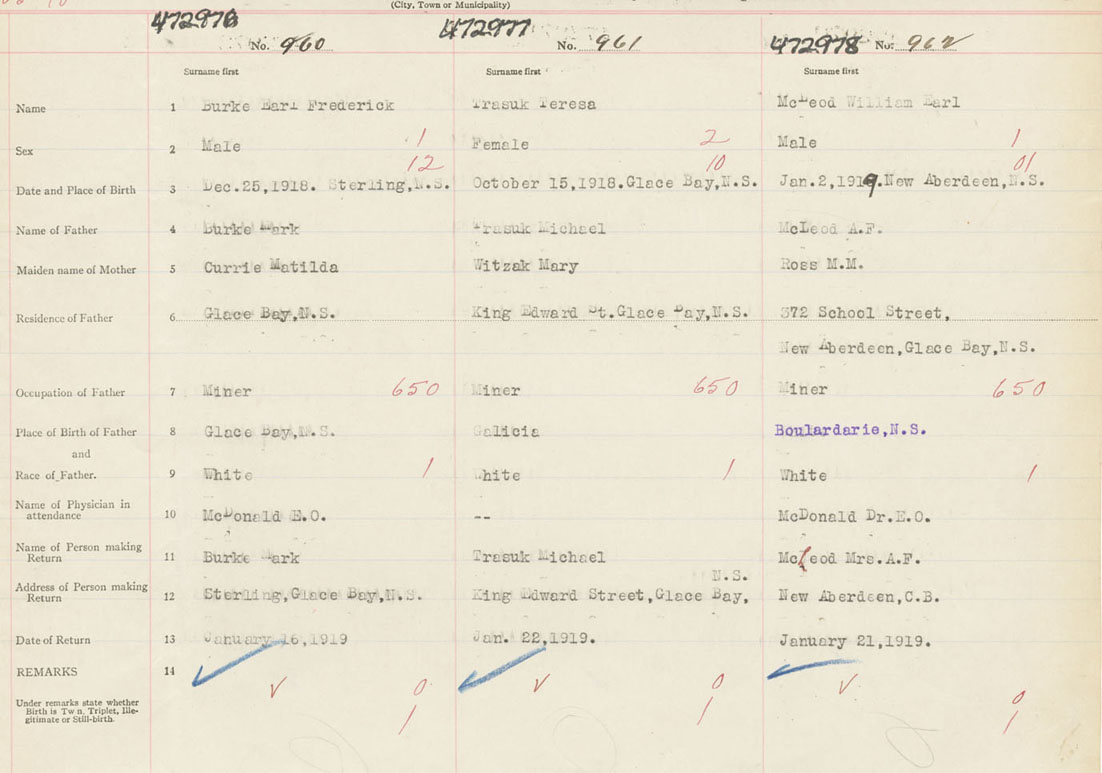 (City, Town or Municipality)
472976 472977 472978
No. 960 No. 961 No. 962
Surname first Surname first Surname first
Name 1 Burke Earl Frederick Trasuk Teresa McLeod William Earl
Sex 2 Male 1 Female 2 Male 1
12 10 01
Date and Place of Birth 3 Dec.25,1918. Sterling,N.S. October 15,1918.Glace Bay,N.S. Jan.2,1919.New Aberdeen,N.S.
Name of Father 4 Burke Mark Trasuk Michael McLeod A.F.
Maiden name of Mother 5 Currie Matilda Witzak Mary Ross M.M.
Residence of Father 6 Glace Bay,N.S. King Edward St.Glace Bay,N.S. 372 School Street,
New Aberdeen,Glace Bay,N.S.
Occupation of Father 7 Miner 650 Miner 650 Miner 650
Place of Birth of Father 8 Glace Bay,N.S. Galicia Boulardarie,N.S.
and
Race of Father. 9 White 1 White 1 White 1
Name of Physician in
attendance 10 McDonald E.O. -- McDonald Dr.E.O.
Name of Person making
Return 11 Burke Mark Trasuk Michael McLeod Mrs.A.F.
N.S.
Address of Person making
Return 12 Sterling,Glace Bay,N.S. King Edward Street,Glace Bay, New Aberdeen,C.B.
Date of Return 13 January 16,1919 Jan. 22,1919. January 21,1919.
REMARKS 14
V 0 V 0 V 0
Under remarks state whether
Birth is Twin, Triplet, Ille-
gitimate or Still-birth.
1 1 1